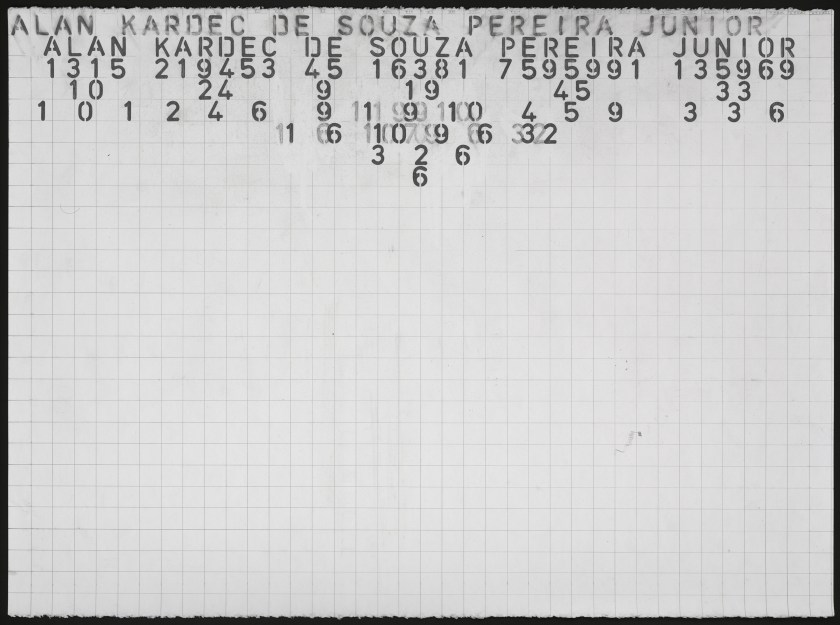 ALAN KARDEC DE SOUZA PEREIRA JUNIOR
ALAN KARDEC DE SOUZA PEREIRA JUNIOR
1315 219453 45 16381 7595991 135969
10 24 9 19 45 33
1 0 1 2 4 6 9 11 9 10 4 5 9 3 3 6
11 6 10 9 6 32
3 2 6
6